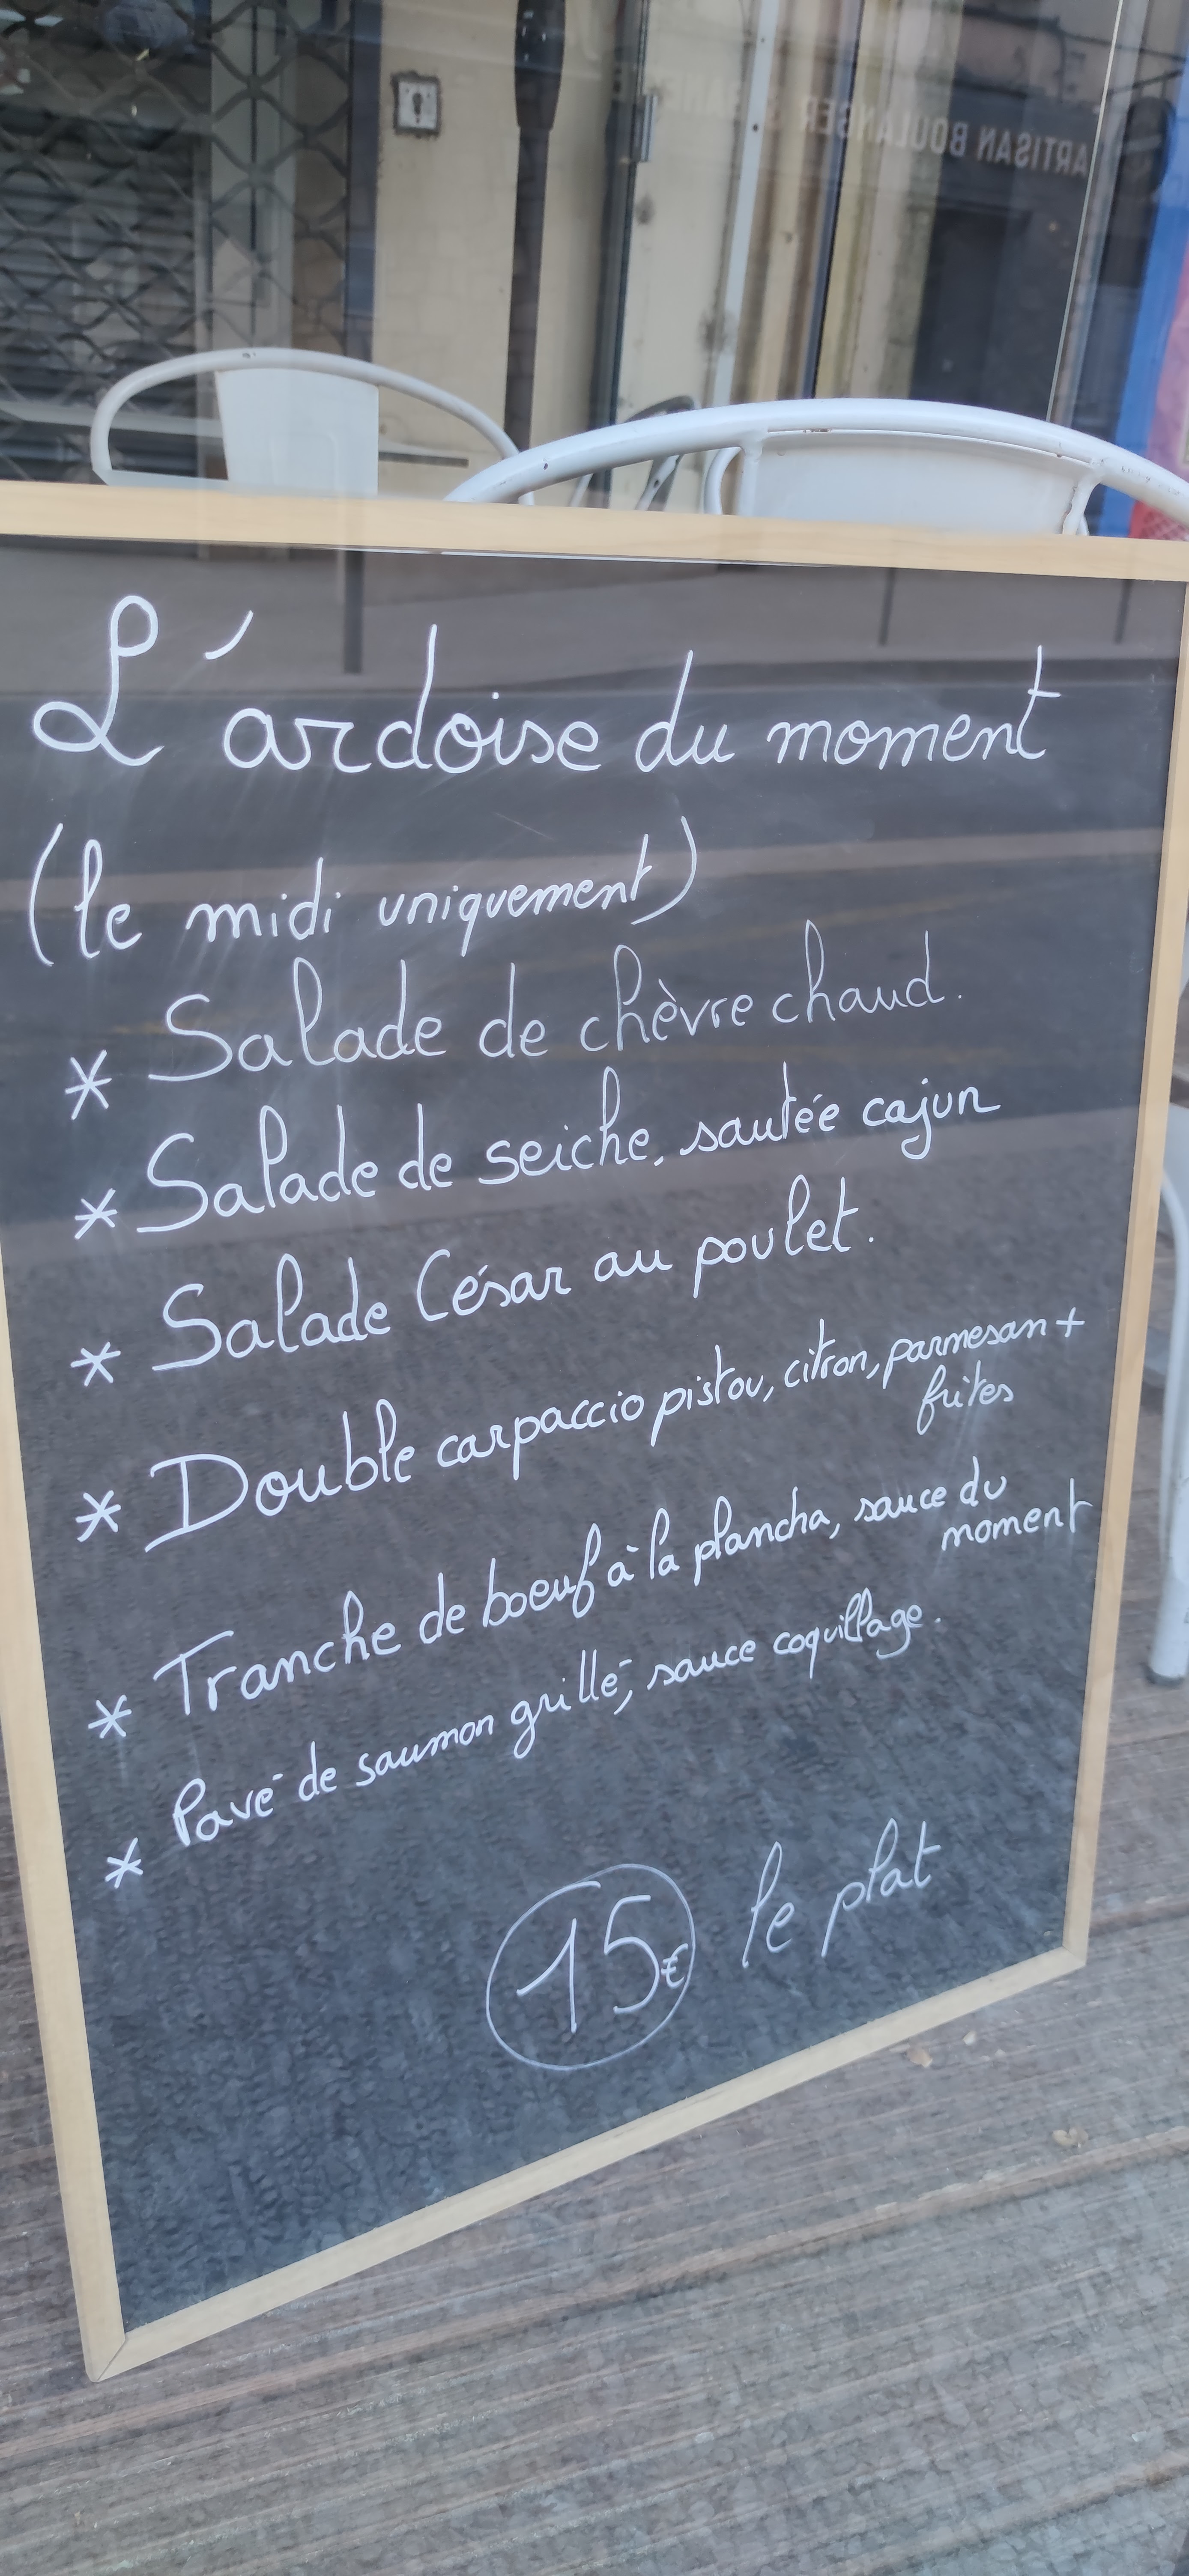 ARTISAN BOULANGER
L'ardoise du moment
(le midi uniquement)
* Salade de chèvre chaud.
* Salade de seiche, sautée cajun
* Salade César au poulet.
* Double carpaccio pistou, citron, parmesan +
frites
* Tranche de boeuf à la plancha, sauce du
moment
* Pavé de saumon grillé, sauce coquillage.
15€ le plat